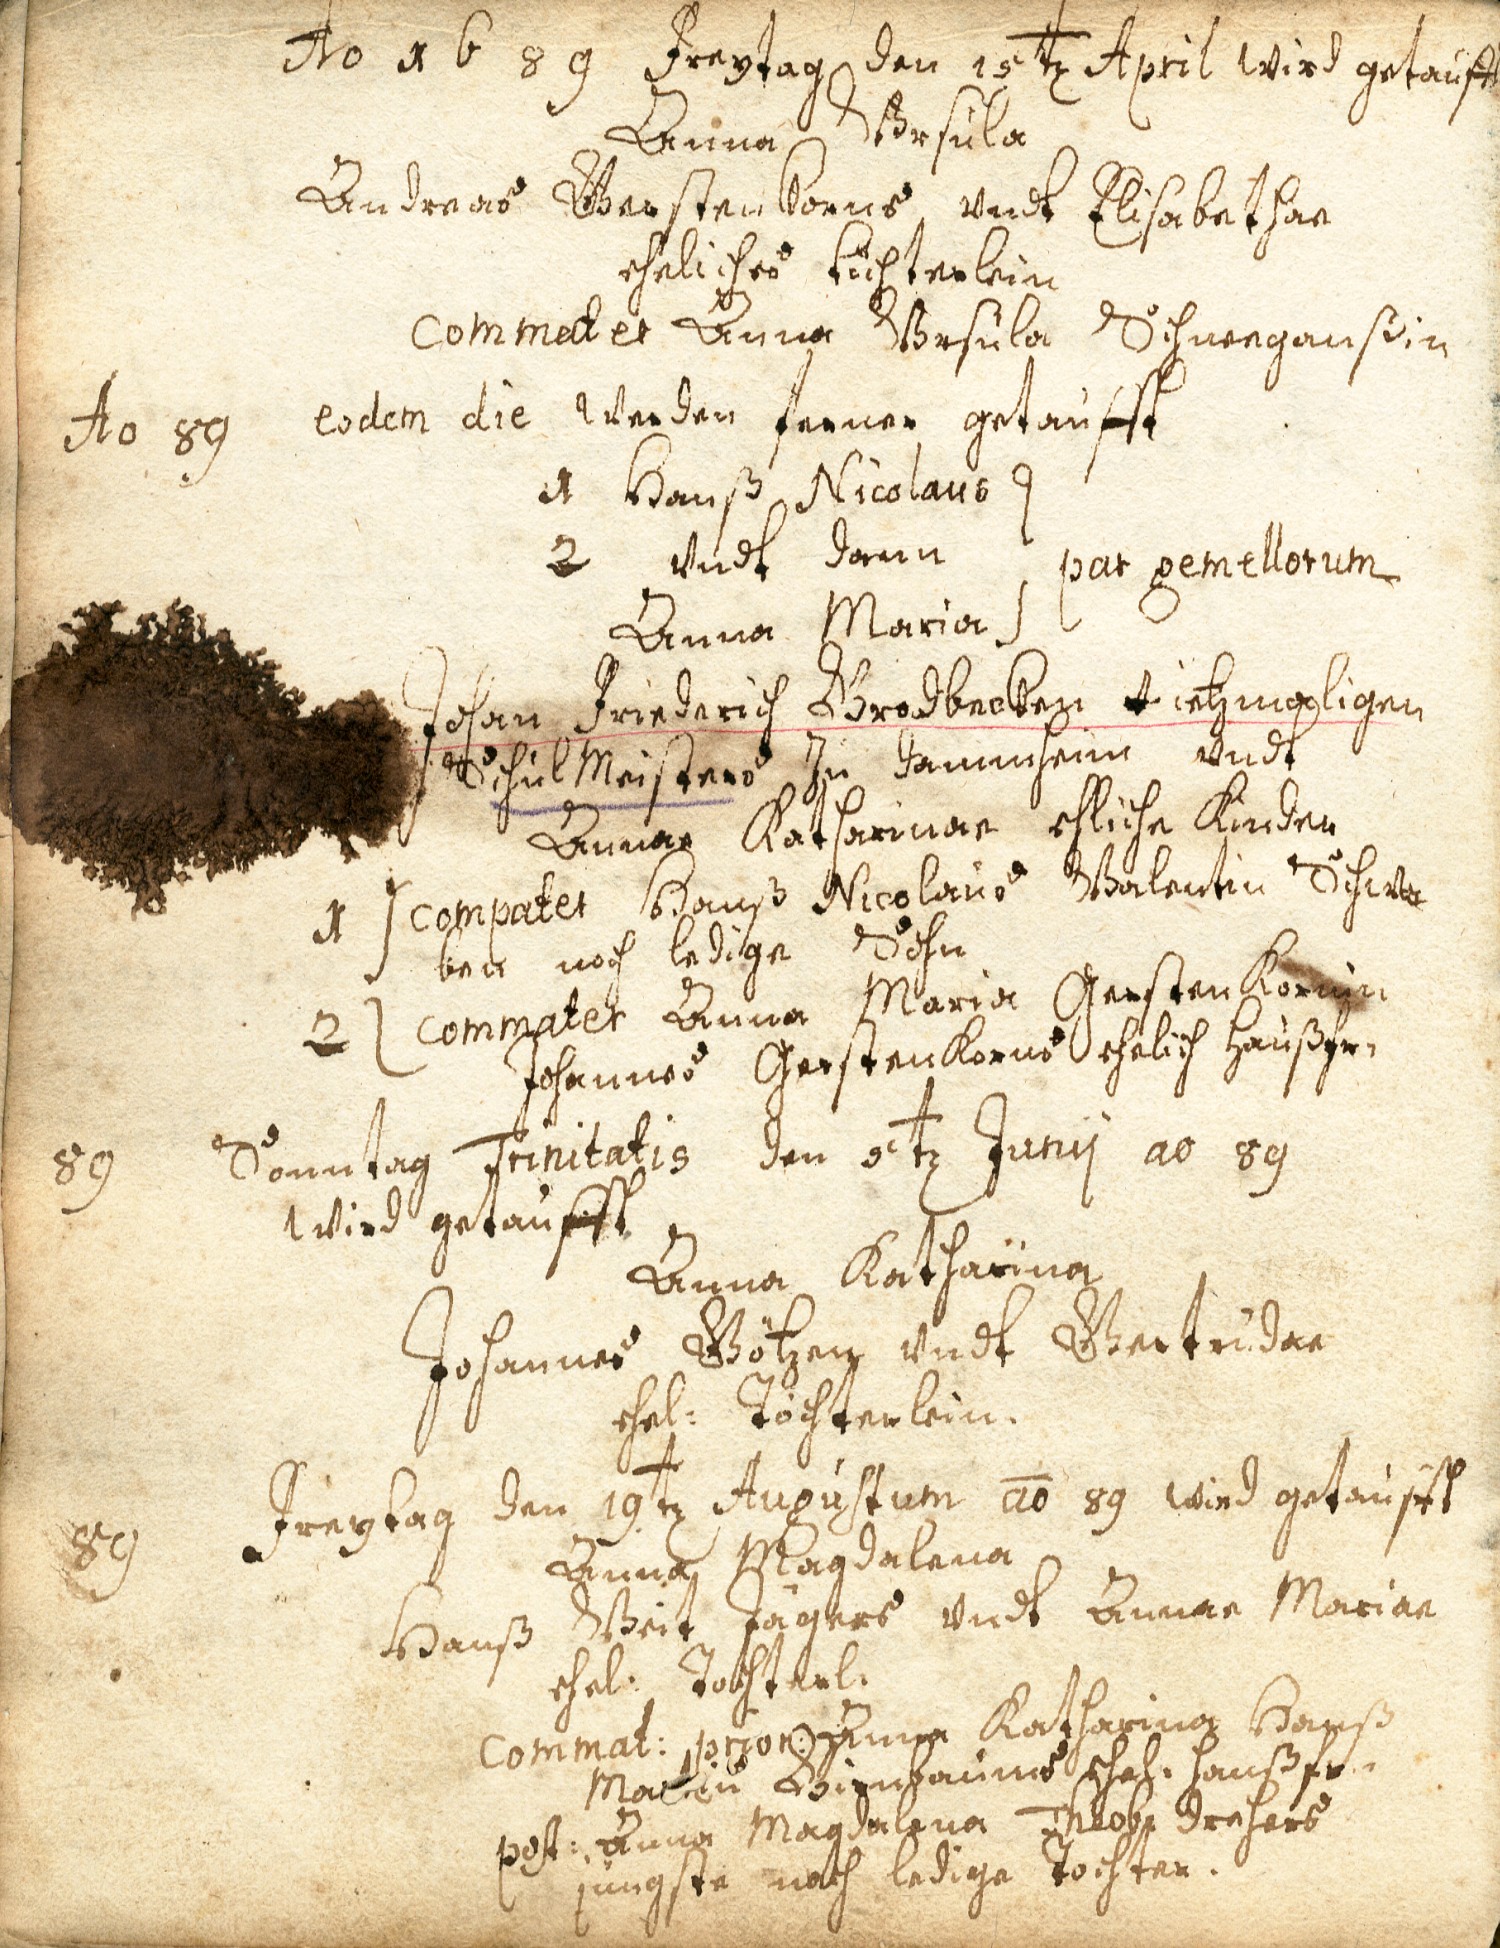 Ao 1 6 8 9 Freytag den 15 tz April wird getaufft
Anna Ursula
Andreas Gerstenkorns undt Elisabethae
eheliches töchterlein
Commater Anna Ursula Schneeganßin
Ao 89 eodem die werden ferner getaufft
1 Hanß Nicolaus
2 undt dann
par gemellorum
Anna Maria
Johan Friederich Brodbecken ietzmahligen
SchulMeisters In dammheim undt
Annae Katharinae ehliche Kinder
1 compater Hanß Nicolaus Valentin Schwa
ben noch ledige Sohn
2 commater Anna Maria GerstenKornin
Johannes GerstenKorns ehelich Haußfr.
89 Sonntag Trinitatis den 5 tz Junij ao 89
wird getaufft
Anna Katharina
Johannes Götzen undt Gertrudae
ehel: Töchterlein.
89 Freytag den 19 tz Augustum ao 89 wird getaufft
Anna Magdalena
Hanß Veit Jägers undt Annae Mariae
ehel: Tochterl:
Commat: prior: Anna Katharina Hanß
Martin Birnbaums ehel. haußfr.
post: Anna Magdalena Theobs drehers
jüngste noch ledige Tochter.